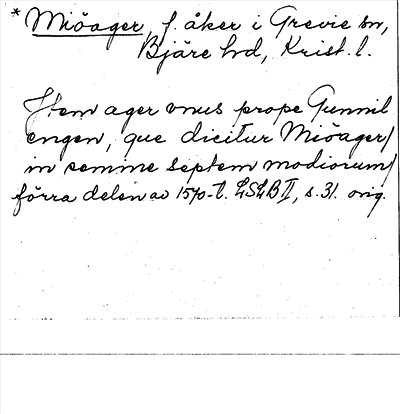 * Miöager, f. åker i Grevie sn,
Bjäre hd, Krist. l.
Item ager vnus prope Gunnil
engen, que dicitur Miöager/
in semine septem modiorum/
förra delen av 1570-t. LSLB II, s. 31. orig.